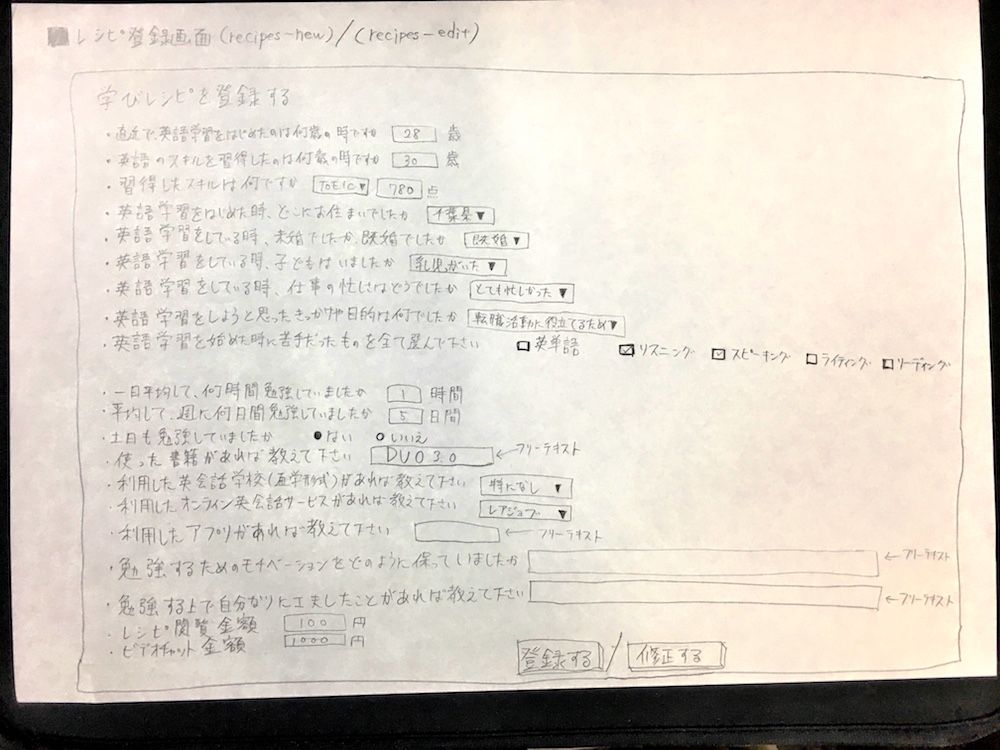 レシピ登録画面(recipes-new)/(recipes-edit)
学びレシピを登録する
・直近で、英語学習をはじめたのは何歳の時ですか 28 歳
・英語のスキルを習得したのは何歳の時ですか 30 歳
・習得したスキルは何ですか TOEIC▼ 780 点
・英語学習をはじめた時、どこにお住まいでしたか 千葉県▼
・英語学習をしている時、未婚でしたか、既婚でしたか 既婚▼
・英語学習をしている時、子どもはいましたか 乳児がいた▼
・英語学習をしている時、仕事の忙しさはどうでしたか とても忙しかった▼
・英語学習をしようと思ったきっかけや目的は何でしたか 転職活動に役立てるため▼
・英語学習を始めた時に苦手だったものを全て選んで下さい □英単語 ☑リスニング ☑スピーキング □ライティング □リーディング
・一日平均して、何時間勉強していましたか 1 時間
・平均して、週に何日間勉強していましたか 5 日間
・土日も勉強していましたか ●はい ○いいえ
・使った書籍があれば教えて下さい DUO 3.0 ←フリーテキスト
・利用した英会話学校(通学形式)があれば教えて下さい 特になし▼
・利用したオンライン英会話サービスがあれば教えて下さい レアジョブ▼
・利用したアプリがあれば教えて下さい ←フリーテキスト
・勉強するためのモチベーションをどのように保っていましたか ←フリーテキスト
・勉強する上で自分なりに工夫したことがあれば教えて下さい ←フリーテキスト
・レシピ閲覧金額 100 円
・ビデオチャット金額 1000 円
登録する / 修正する